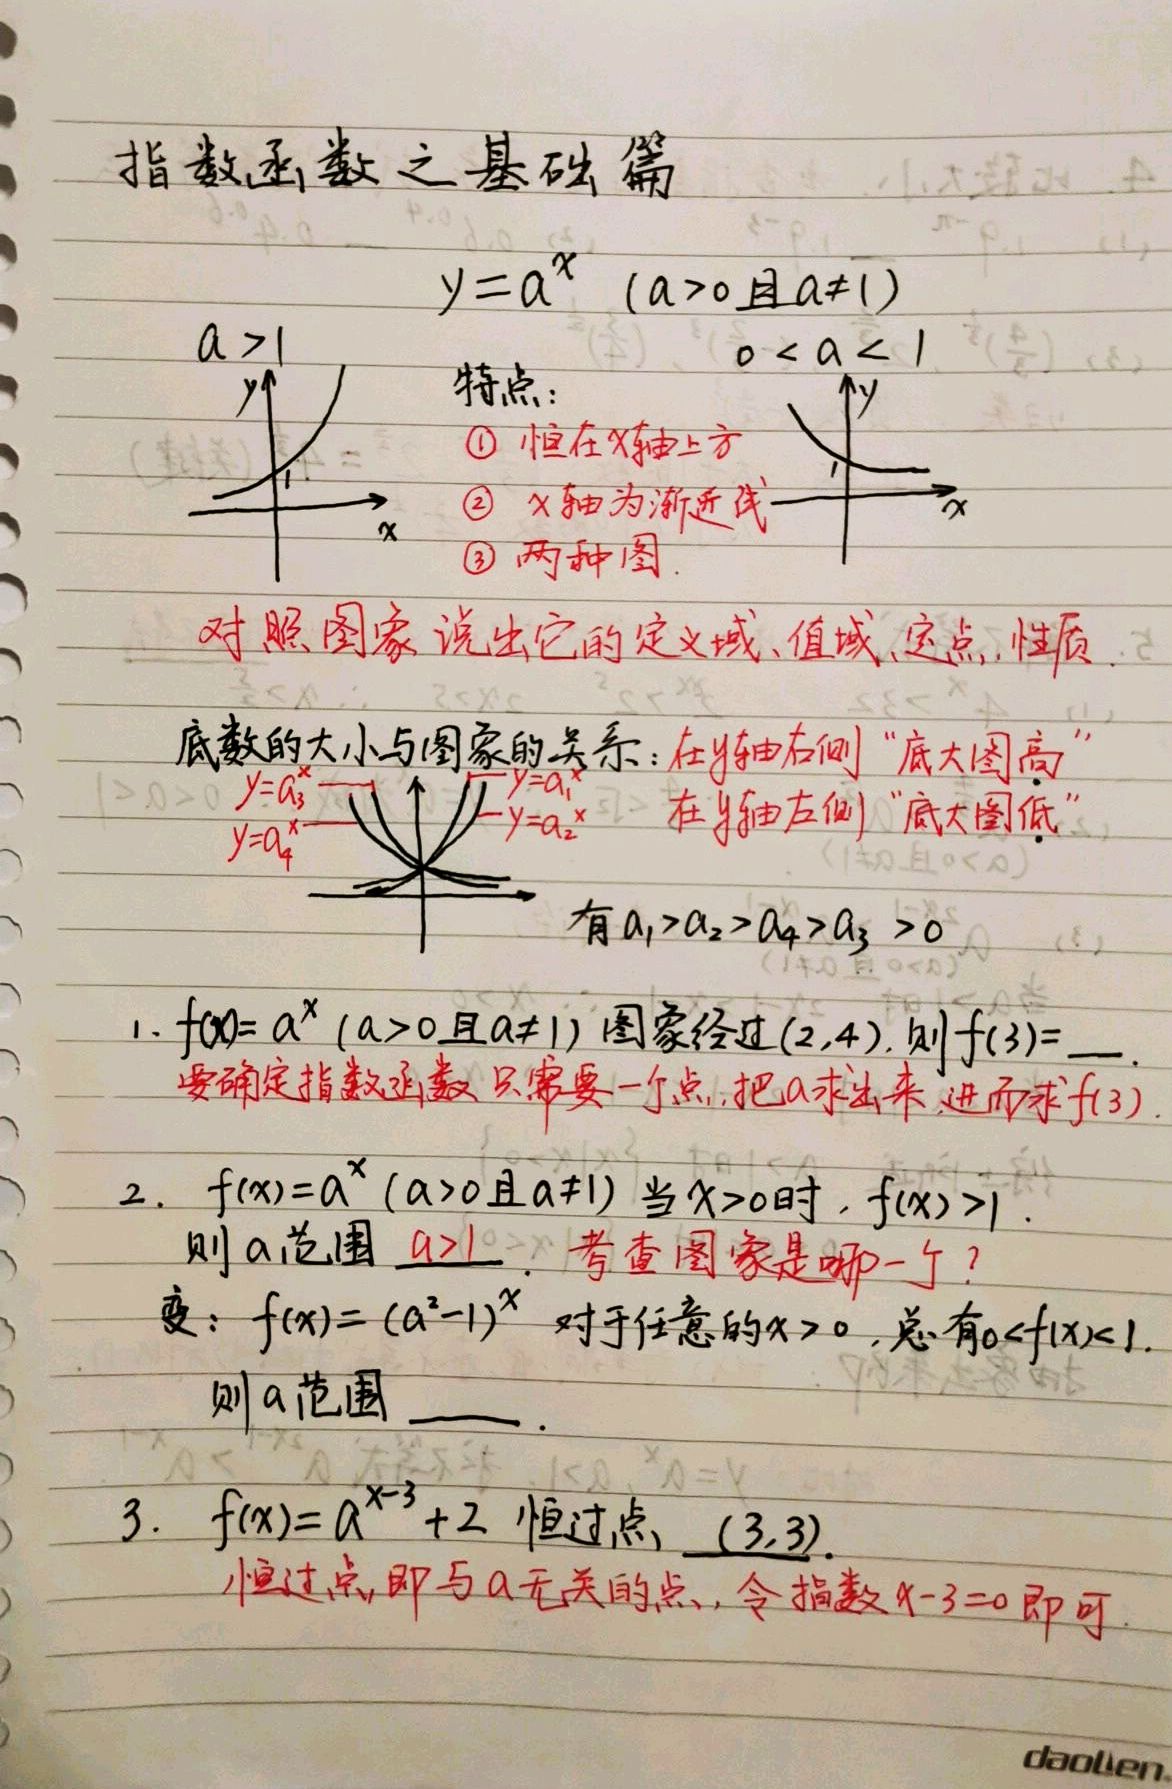 指数函数之基础篇
y=aˣ (a>0且a≠1)
a>1
0<a<1
y
1
x
特点:
① 恒在x轴上方
② x轴为渐近线
③ 两种图.
y
1
x
对照图象说出它的定义域、值域、定点、性质.
底数的大小与图象的关系: 在y轴右侧“底大图高”
在y轴左侧“底大图低”
y=a₃ˣ
y=a₄ˣ
y=a₁ˣ
y=a₂ˣ
有a₁>a₂>a₄>a₃>0
1. f(x)=aˣ (a>0且a≠1) 图象经过(2,4), 则f(3)=__.
要确定指数函数只需要一个点, 把a求出来, 进而求f(3).
2. f(x)=aˣ (a>0且a≠1) 当x>0时, f(x)>1.
则a范围 a>1. 考查图象是哪一个?
变: f(x)=(a²-1)ˣ 对于任意的x>0, 总有0<f(x)<1.
则a范围 ____.
3. f(x)=aˣ⁻³+2 恒过点 (3,3).
恒过点, 即与a无关的点, 令指数x-3=0即可.
daolien